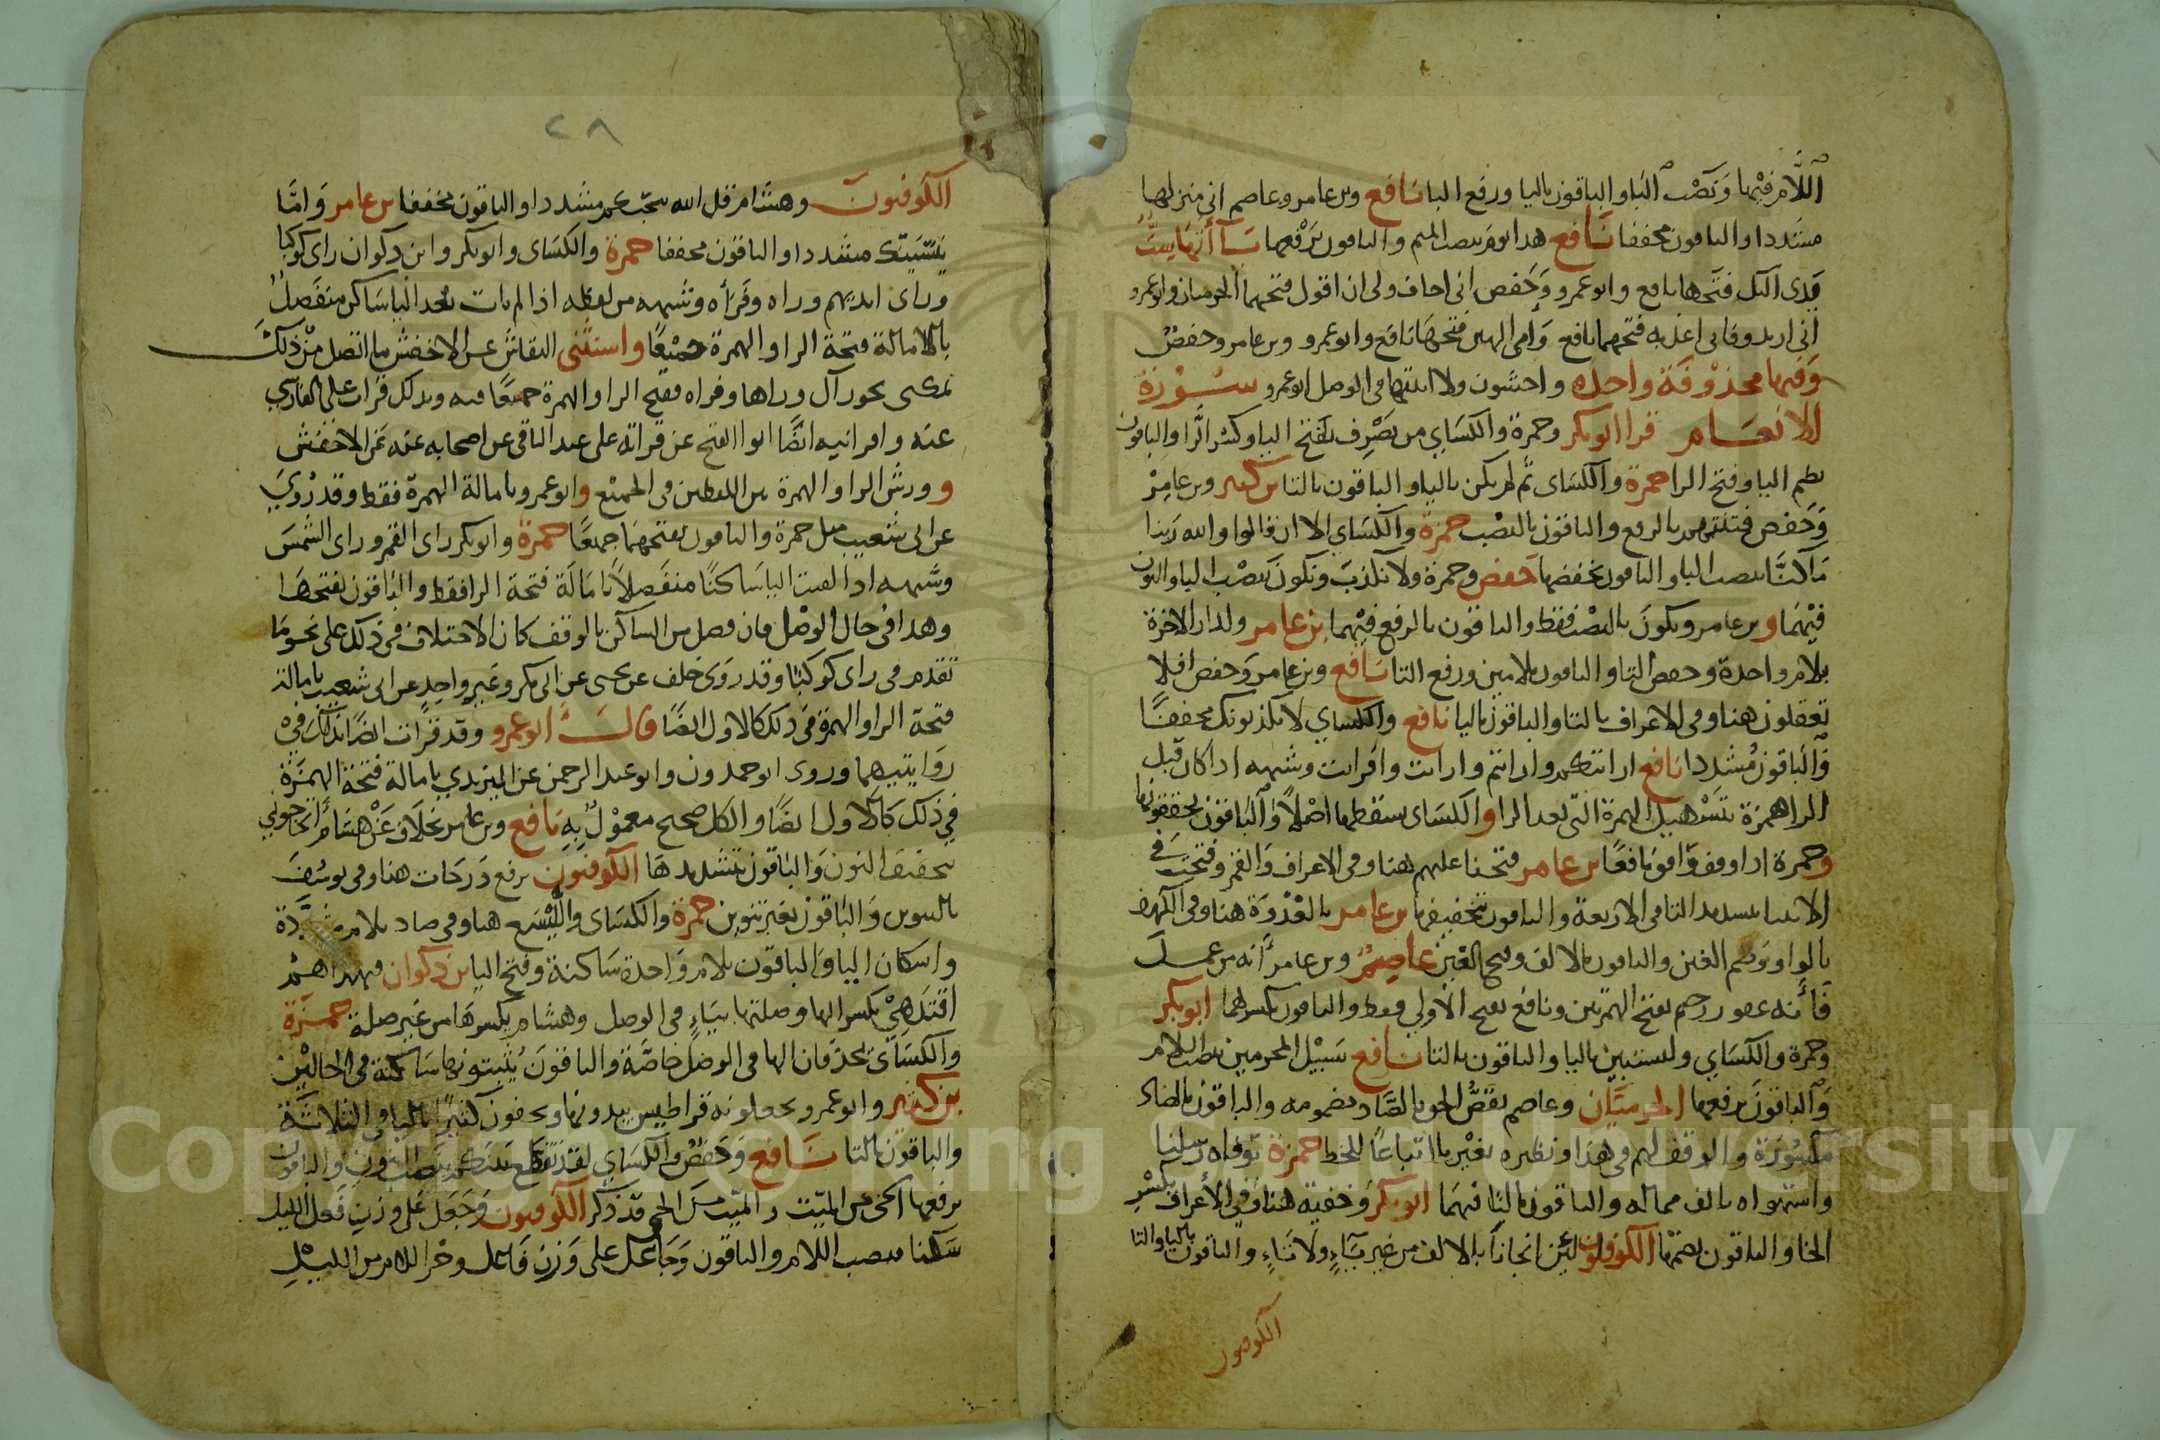 اللام فيهما ونصب اليا والباقون باليا ورفع اليا نافع وبن عامر وعاصم اني منزلها
مشددا والباقون مخففا نافع هذا يوم بنصب الميم والباقون برفعها يااتها ست
يدي اليك فتحها نافع وابو عمرو وحفص اني اخاف ولي ان اقول فتحهما الحرميان وابو عمرو
اني اريد وفاني اعذبه فتحهما نافع وامي الهين فتحها نافع وابو عمرو وبن عامر وحفص
وفيها محذوفة واحده واخشون ولا اثبتها في الوصل ابو عمرو سورة
الانعام قرا ابو بكر وحمزة والكساي من يصرف بفتح اليا وكسر الرا والباقون
بضم اليا وفتح الرا حمزة والكساى ثم لم يكن باليا والباقون بالتا بن كثير وبن عامر
وحفص فتنتهم بالرفع والباقون بالنصب حمزة والكساي الا ان قالوا والله ربنا
ما كنا بنصب البا والباقون بخفضها حفص وحمزة ولا نكذب ونكون بنصب البا والنون
فيهما وبن عامر ونكون بالنصب فقط والباقون بالرفع فيهما بن عامر ولدار الاخرة
بلام واحدة وخفض التا والباقون بلامين ورفع التا نافع وبن عامر وحفص افلا
تعقلون هنا وفي الاعراف بالتا والباقون باليا نافع والكساي لا يكذبونك مخففا
والباقون مشددا نافع ارايتكم وارايتم وارايت وافرايت وشبهه اذا كان قبل
الرا همزة بتسهيل الهمزة التي بعد الرا والكساى يسقطها اصلا والباقون يحققونها
وحمزة اذا وقف وافق نافعا بن عامر فتحنا عليهم هنا وفي الاعراف والقمر وفتحت في
الانبيا بتشديد التا في الاربعة والباقون بتخفيفها بن عامر بالغدوة هنا وفي الكهف
بالواو وضم الغين والباقون بالالف وفتح الغين عاصم وبن عامر أنه من عمل
فأنه غفور رحيم بفتح الهمزتين ونافع بفتح الاولي فقط والباقون بكسرهما ابو بكر
وحمزة والكساي وليستبين باليا والباقون بالتا نافع سبيل المجرمين بنصب اللام
والباقون برفعها الحرميان وعاصم يقص الحق بالصاد مضمومه والباقون بالضاد
مكسورة والوقف لهم في هذا ونظيره بغير يا اتباعا للخط حمزة توفاه رسلنا
واستهواه بالف مماله والباقون بالتا فيهما ابو بكر وخفية هنا وفي الأعراف بكسر
الخا والباقون بضمها الكوفيون لئن انجانا بالالف من غير ياء ولا تاء والباقون باليا والتا
الكوفيون
٢٨
الكوفيون وهشام قل الله ينجيكم مشددا والباقون مخففا بن عامر واما
ينسينك مشددا والباقون مخففا حمزة والكساى وابو بكر وابن ذكوان راى كوكبا
وراى ايديهم وراه وفرأه وشبهه من لفظه اذا لم يات بعد اليا ساكن منفصل
بالامالة فتحة الرا والهمزة جميعا واستثنى النقاش عن الاخفش ما اتصل من ذلك
بمكنى نحو راك وراها وفراه ففتح الرا والهمزة جميعا فيه وبذلك قرات على الفارسي
عنه واقرانيه ايضا ابو الفتح عن قراته على عبد الباقي عن اصحابه عنه عن الاخفش
وورش الرا والهمزة بين اللفظين في الجميع وابو عمرو بامالة الهمزة فقط وقد روي
عن ابي شعيب مثل حمزة والباقون بفتحهما جميعا حمزة وابو بكر راى القمر وراى الشمس
وشبهه اذا لقيت اليا ساكنا منفصلا بامالة فتحة الرا فقط والباقون بفتحها
وهذا في حال الوصل فان فصل من الساكن بالوقف كان الاختلاف في ذلك على نحو ما
تقدم في راى كوكبا وقد روى خلف عن يحيى عن ابي بكر وغير واحد عن ابي شعيب بامالة
فتحة الرا والهمزة في ذلك كالاول ايضا قال ابو عمرو وقد قرات ايضا بذلك في
روايتيهما وروى ابو حمدون وابو عبد الرحمن عن اليزيدي بامالة فتحة الهمزة
في ذلك كالاول ايضا والكل صحيح معمول به نافع وبن عامر بخلاف عن هشام أتحاجوني
بتخفيف النون والباقون بتشديدها الكوفيون نرفع درجات هنا وفي يوسف
بالتنوين والباقون بغير تنوين حمزة والكساى والليسع هنا وفي صاد بلام مشددة
واسكان اليا والباقون بلام واحدة ساكنة وفتح اليا بن ذكوان فبهداهم
اقتدهي بكسر الها وصلتها بياء في الوصل وهشام بكسرها من غير صلة حمزة
والكساى يحذفان الها في الوصل خاصة والباقون يثبتونها ساكنة في الحالين
بن كثير وابو عمرو يجعلونه قراطيس يبدونها ويخفون كثيرا باليا في الثلاثة
والباقون بالتا نافع وحفص والكساي لقد تقطع بينكم بنصب النون والباقون
برفعها الحي من الميت والميت من الحي قد ذكر الكوفيون وجعل على وزن فعل الليل
سكنا بنصب اللام والباقون وجاعل على وزن فاعل وجر اللام من الليل
Copyright © King Saud University